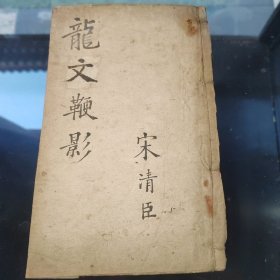 龍文鞭影
宋清臣